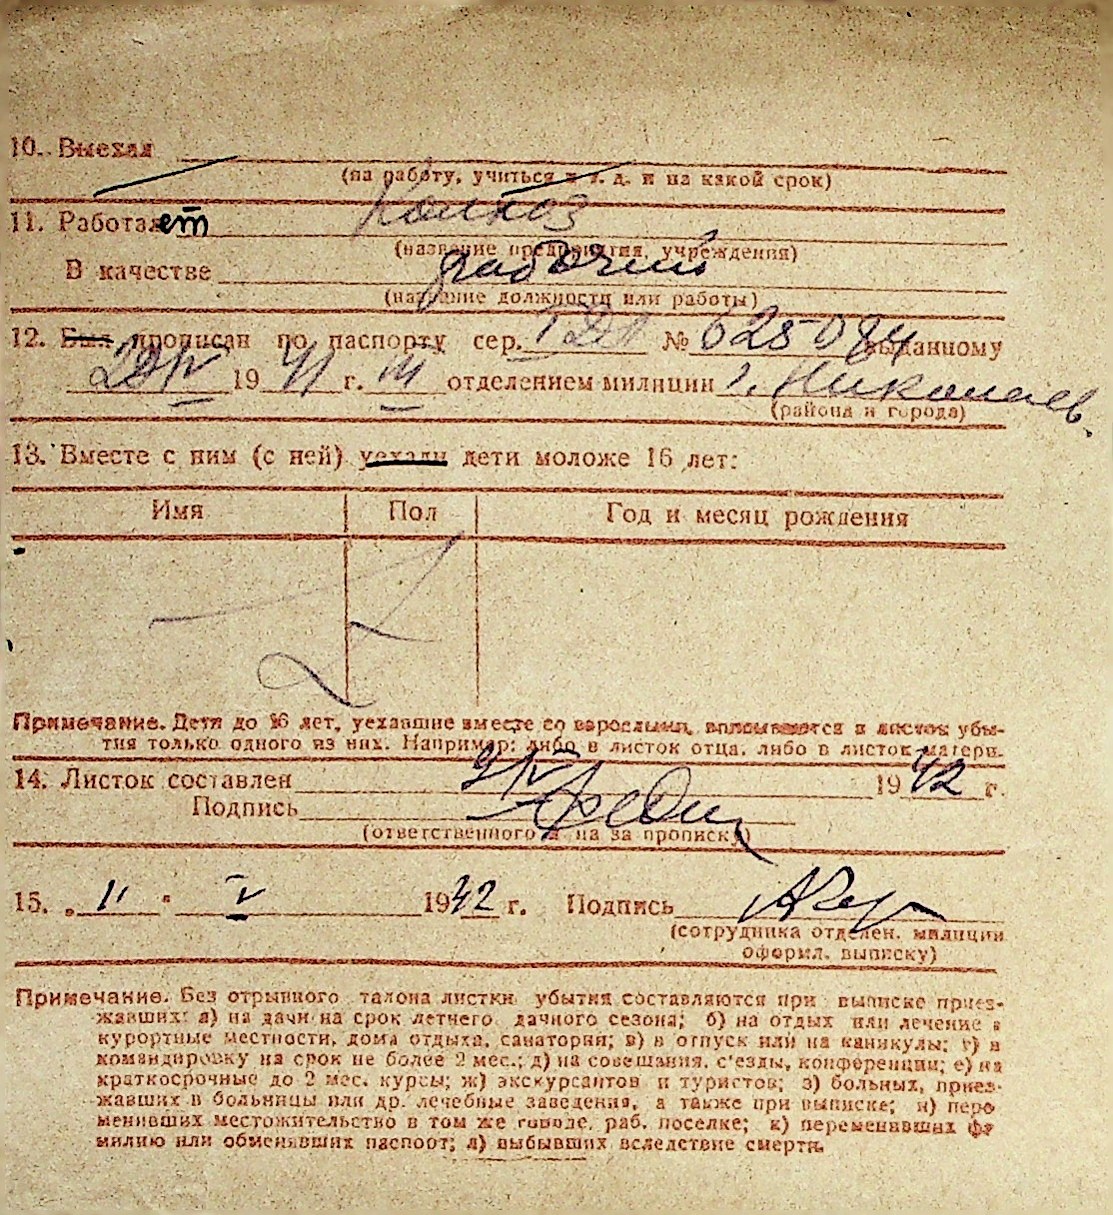 10. Выехал
(на работу, учиться и т. д. и на какой срок)
11. Работает колхоз
(название предприятия, учреждения)
В качестве рабочий
(название должности или работы)
12. Был прописан по паспорту сер. № 625084 выданному
IV 1941 г. III отделением милиции г. Николаев.
(района и города)
13. Вместе с ним (с ней) уехали дети моложе 16 лет:
Имя Пол Год и месяц рождения
Примечание. Дети до 16 лет, уехавшие вместе со взрослыми, вписываются в листок убы-
тия только одного из них. Например: либо в листок отца, либо в листок матери.
14. Листок составлен 9/IV 1942 г.
Подпись
(ответственного на за прописку)
15. „11" V 1942 г. Подпись
(сотрудника отделен. милиции
оформл. выписку)
Примечание. Без отрывного талона листки убытия составляются при выписке приез-
жавших: а) на дачи на срок летнего дачного сезона; б) на отдых или лечение в
курортные местности, дома отдыха, санатории; в) в отпуск или на каникулы; г) в
командировку на срок не более 2 мес.; д) на совещания, с'езды, конференции; е) на
краткосрочные до 2 мес. курсы; ж) экскурсантов и туристов; з) больных, приез-
жавших в больницы или др. лечебные заведения, а также при выписке; и) пере
менивших местожительство в том же городе, раб. поселке; к) переменивших фа
милию или обменявших паспорт; л) выбывших вследствие смерти.